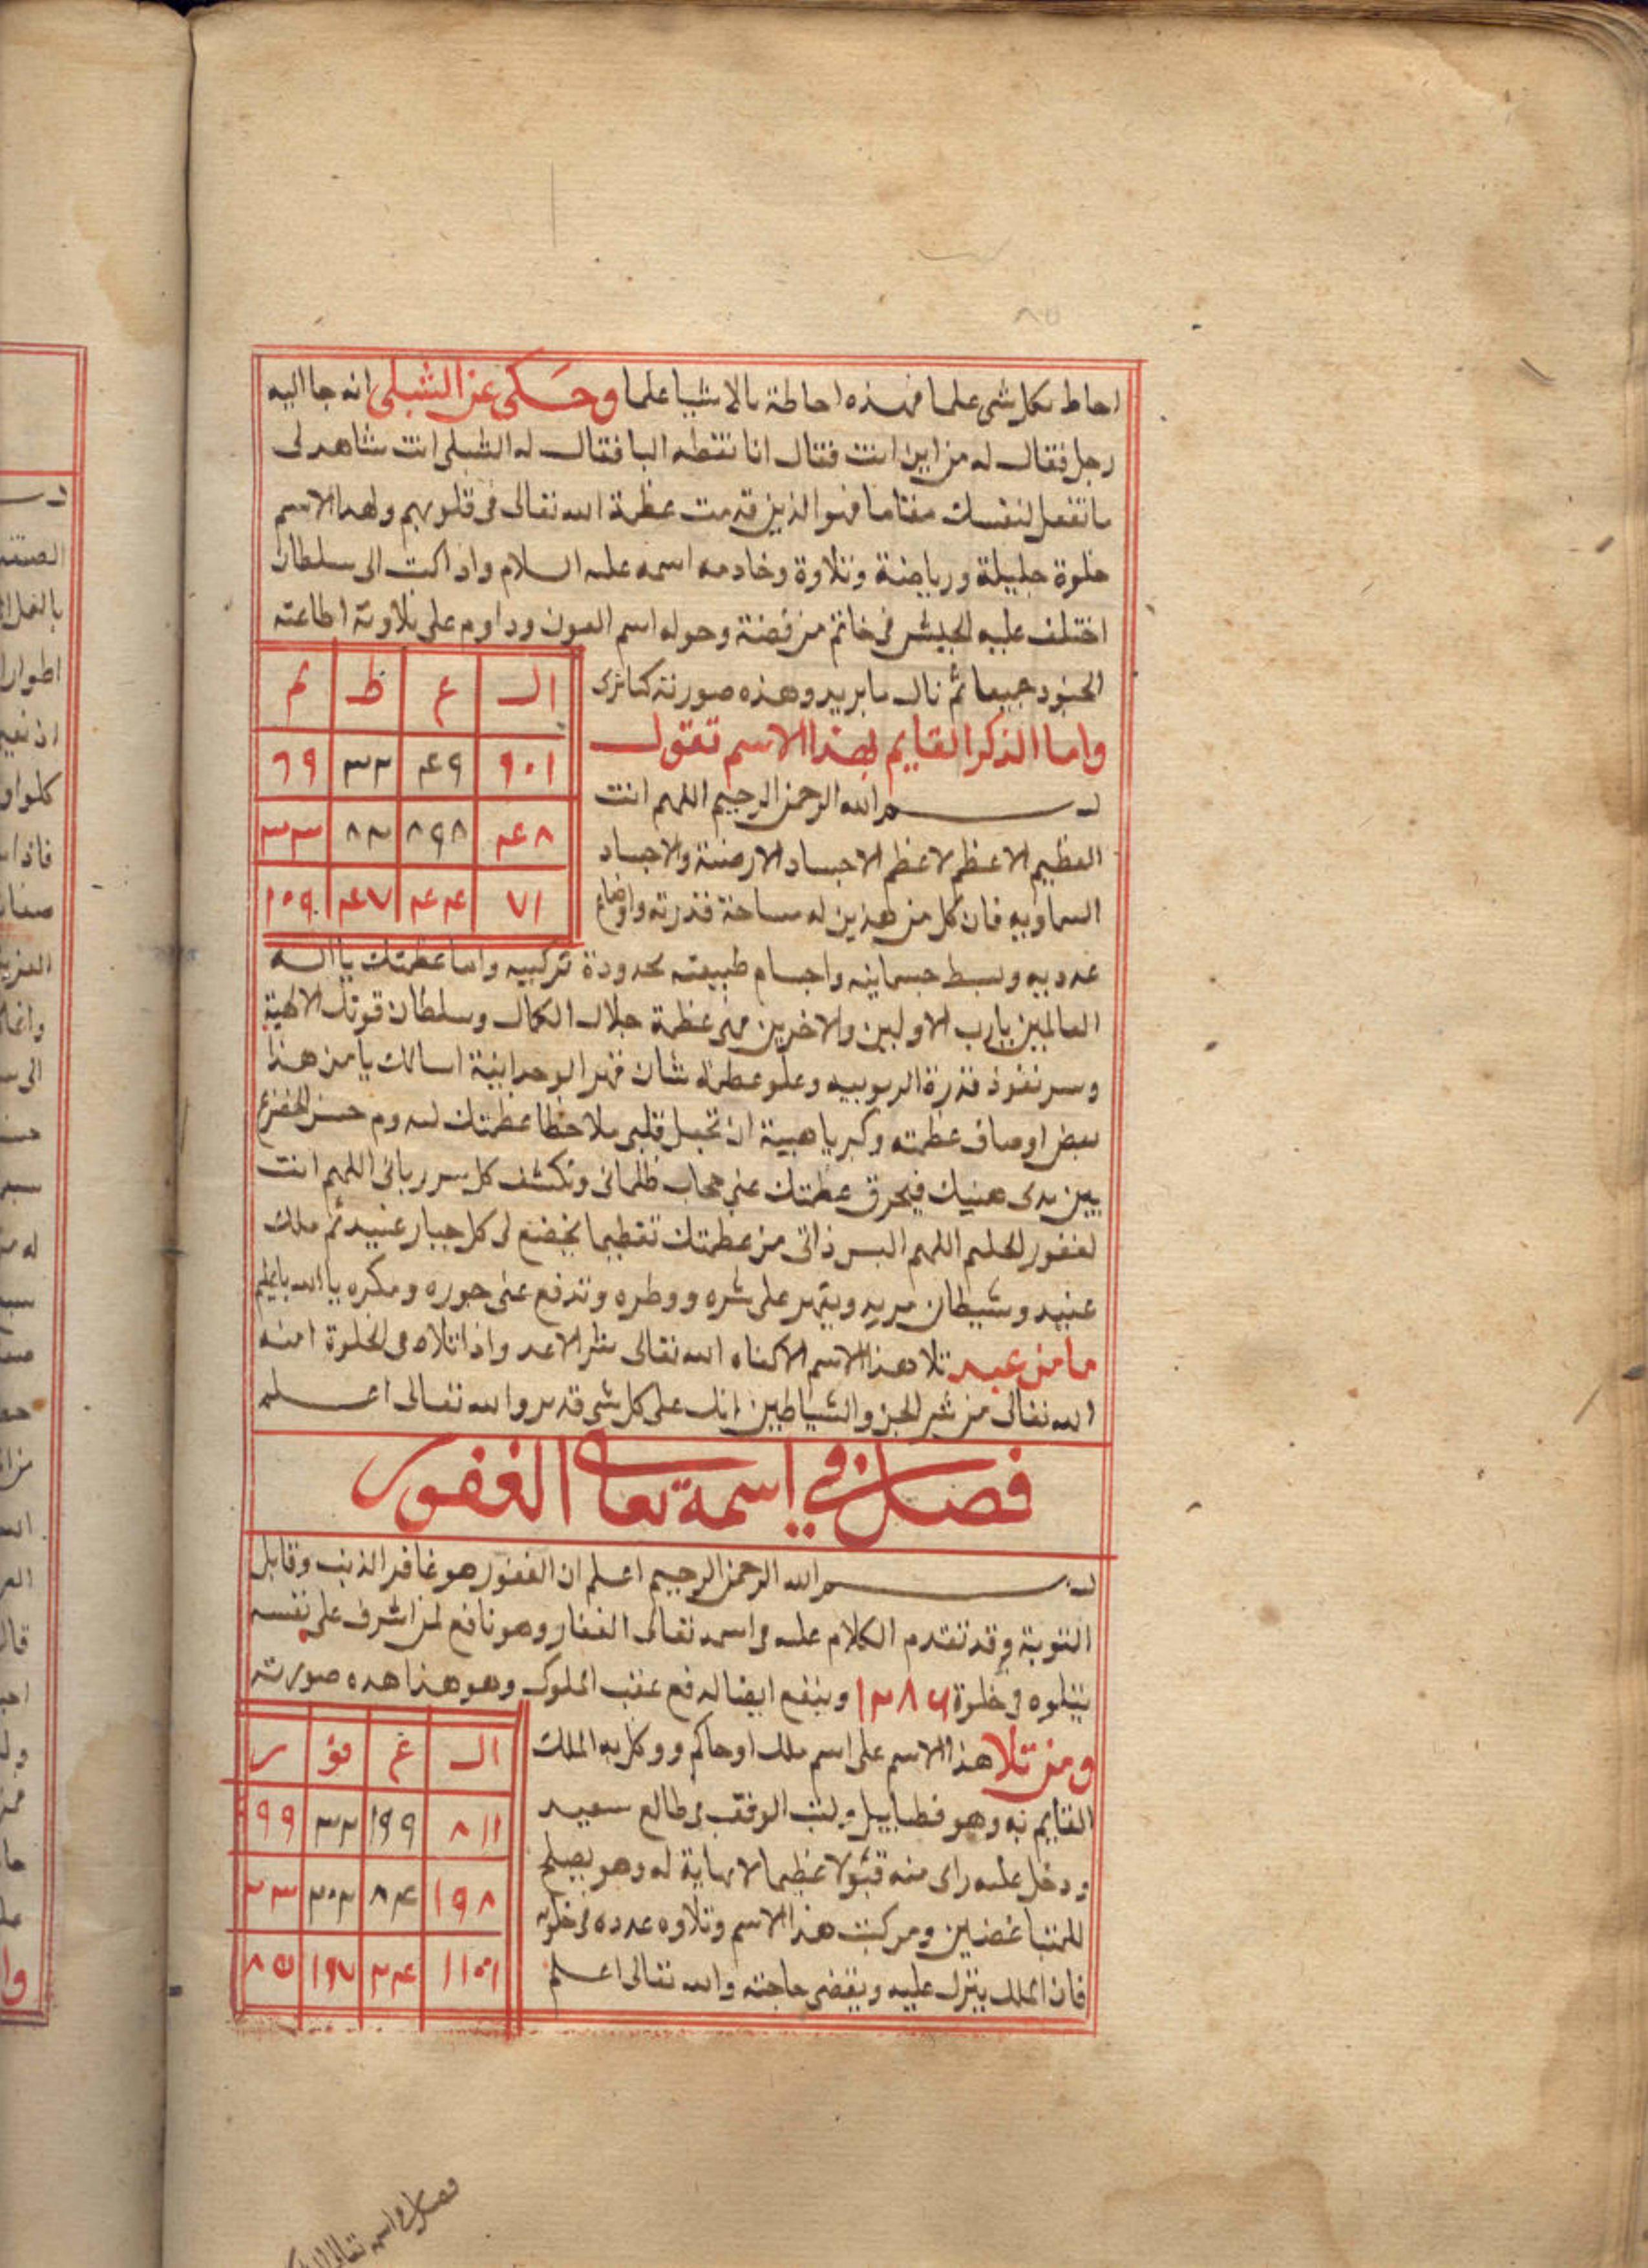 احاط بكل شى علما فهذه احاطة بالاشيا علما وحكى عن الشبلى انه جا اليه
رجل فقال له من اين انت فقال انا نقطه البا فقال له الشبلى انت شاهد لى
ما تفعل لنفسك مقاما فهو الذين قدمت عظمة الله تعالى فى قلوبهم ولهذا الاسم
خلوة جليلة ورياضة وتلاوة وخادمه اسمه عليه السلام واذا كتب الى سلطان
اختلف عليه الجيش فى خاتم من فضة وحوله اسم العون وداوم على تلاوته اطاعته
الجنود جميعا ثم نال ما يريد وهذه صورته كما ترى
ال ع ظ م
واما الذكر القايم بهذا الاسم تقول
٩٠١ ٤٩ ٣٢ ٦٩
بسم الله الرحمن الرحيم اللهم انت
٤٨ ٨٩٨ ٨٢ ٣٣
العظيم الاعظم لاعظم الاجساد الارضية والاجساد
٧١ ٤٤ ٤٧ ١٥٩
السماويه فان كل من هذين له مساحة قدرته واوضاع
عدديه وبسط جسمانيه واجسام طبيعته محدودة تركيبيه واما عظمتك يا اله
العالمين يا رب الاولين والاخرين فهى عظمة جلال الكمال وسلطان قوتك الالهية
وسر نفوذ قدرة الربوبيه وعلو عظمة شان قهر الوحدانية اسالك يا من هذا
بعض اوصاف عظمته وكبريا هيبة ان تجعل قلبى ملاحظا عظمتك
بين يدى هيبتك فيحرق عظمتك عنى حجاب ظلمانى وتكشف كل سر ربانى اللهم انت
لغفور الحليم اللهم البس ذاتى من عظمتك تعظيما يخضع لى كل جبار عنيد ثم ملك
عنيد وشيطان مريد ويقهر على شره ووطره وتدفع عنى جوره ومكره يا الله يا عظيم
ما من عبد تلا هذا الاسم الا كفاه الله تعالى شر الاعد واذا تلاه فى الخلوة امنه
الله تعالى من شر الجن والشياطين انك على كل شى قدير والله تعالى اعلم
فصل فى اسمه تعالى الغفور
بسم الله الرحمن الرحيم اعلم ان الغفور هو غافر الذنب وقابل
التوبة وقد تقدم الكلام عليه فى اسمه تعالى الغفار وهو نافع لمن اشرف على نفسه
يتلوه فى خلوة ١٢٨٦ وينفع ايضا لدفع غضب الملوك وهو هذا هده صورته
ومن تلا هذا الاسم على اسم ملك او حاكم ووكل به الملك
ال غ فو ر
القايم به وهو فطياييل وكتب الوفق فى طالع سعيد
٨١١ ١٩٩ ٣٢ ٩٩
ودخل عليه راى منه قبولا عظيما لا نهاية له وهو يصلح
١٩٨ ٨٤ ٢٠٢ ٣٣
للمتباغضين ومن كتب هذا الاسم وتلاوه عدده فى خلوه
١١٥١ ٣٤ ١٩٧ ٨٥
فان الملك ينزل عليه ويقضى حاجته والله تعالى اعلم
فصل فى اسمه تعالى